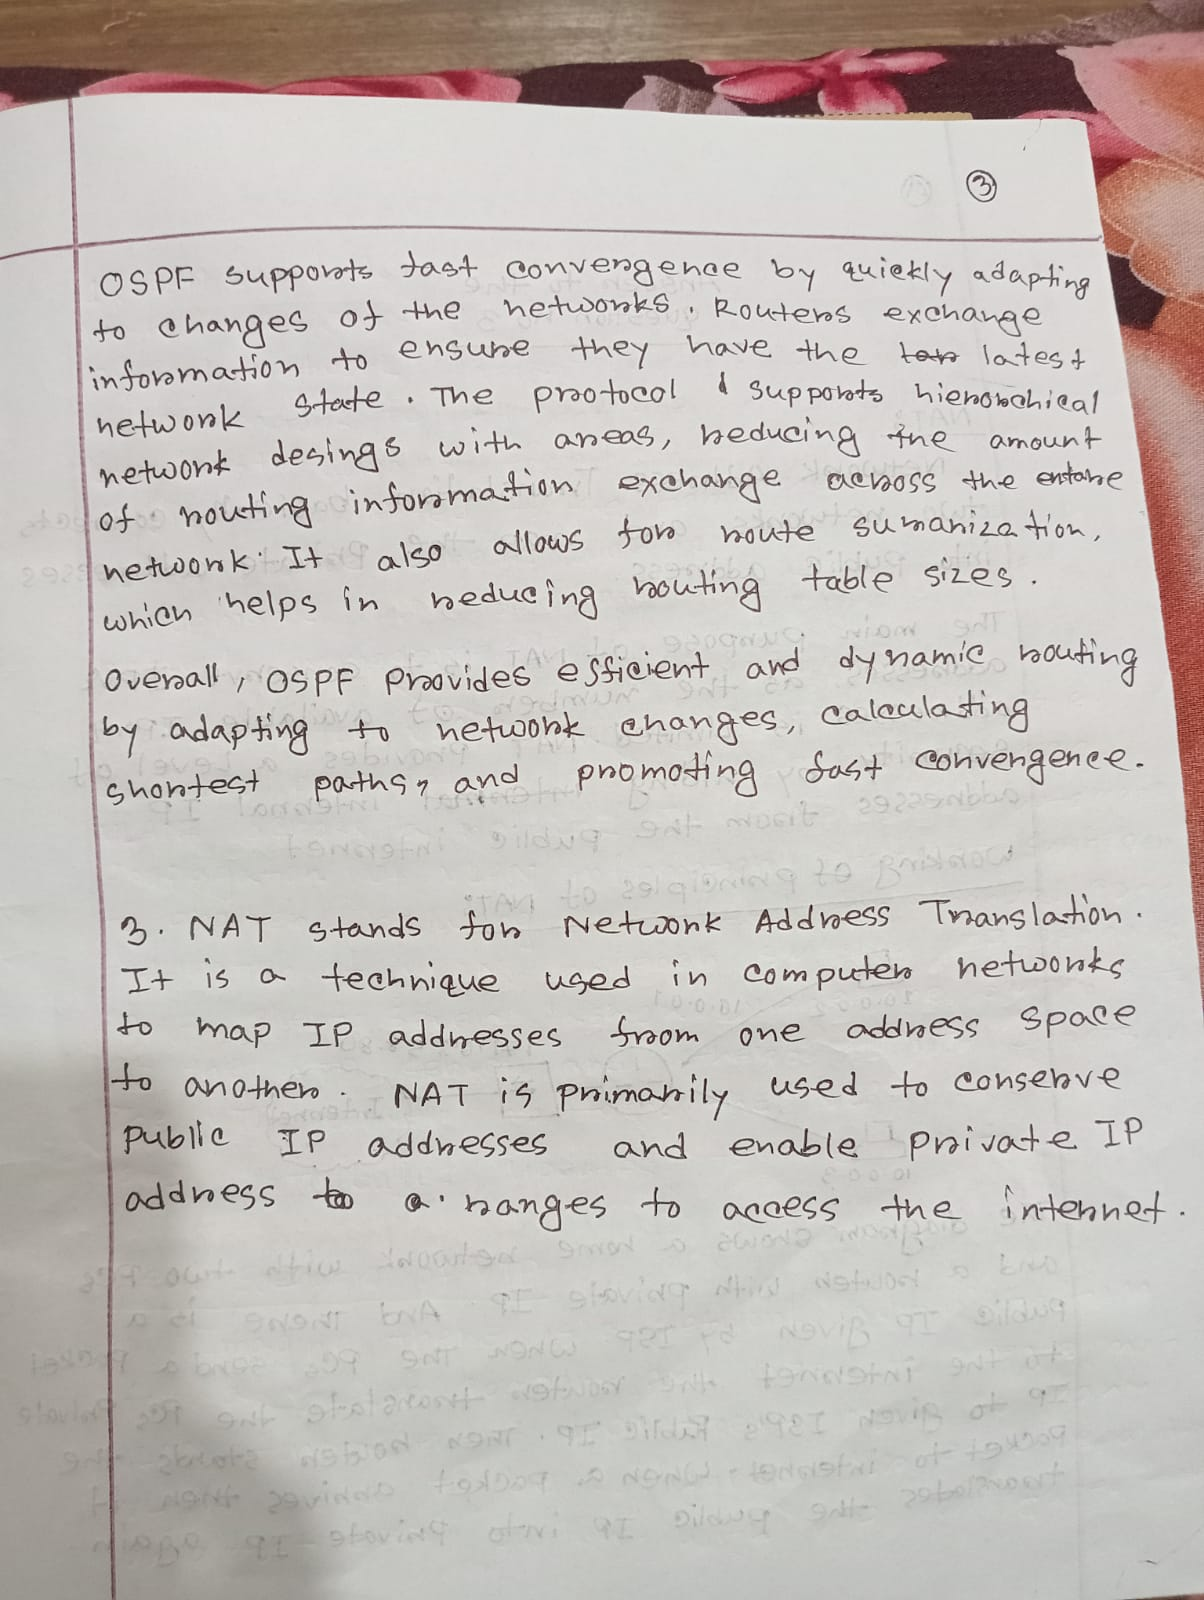 3
OSPF supports fast convergence by quickly adapting
to changes of the networks. Routers exchange
information to ensure they have the latest
network state. The protocol supports hierarchical
network desings with areas, reducing the amount
of routing information exchange across the entare
network. It also allows for route sumarization,
which helps in reducing routing table sizes.
Overall, OSPF Provides efficient and dynamic routing
by adapting to network changes, calculating
shortest paths, and promoting fast convergence.
3. NAT stands for Network Address Translation.
It is a technique used in computer networks
to map IP addresses from one address space
to another. NAT is primarily used to conserve
Public IP addresses and enable private IP
address ranges to access the internet.